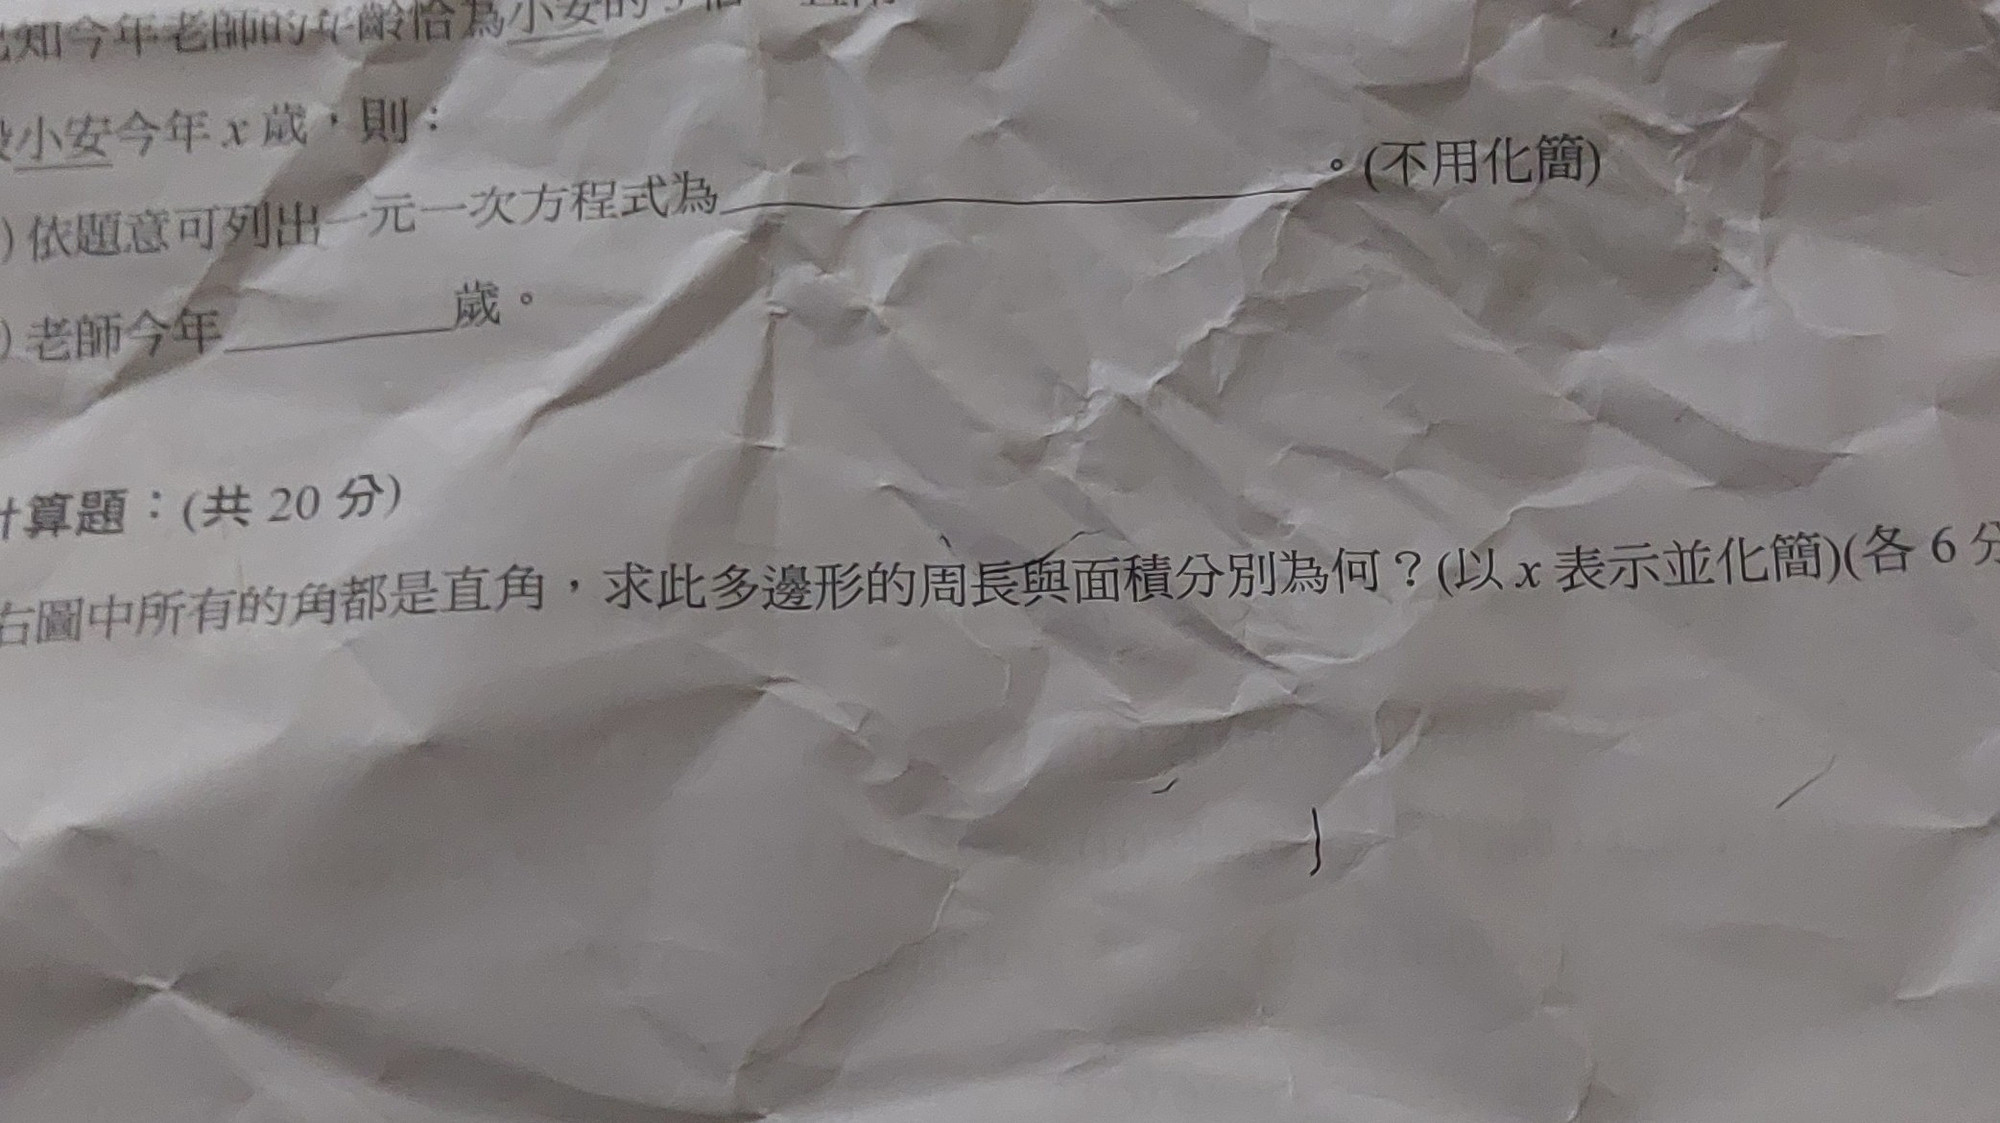 知今年老師的年齡恰為小安的
小安今年 x 歲，則：
) 依題意可列出一元一次方程式為____________。(不用化簡)
) 老師今年________歲。
計算題：(共 20 分)
右圖中所有的角都是直角，求此多邊形的周長與面積分別為何？(以 x 表示並化簡)(各 6 分